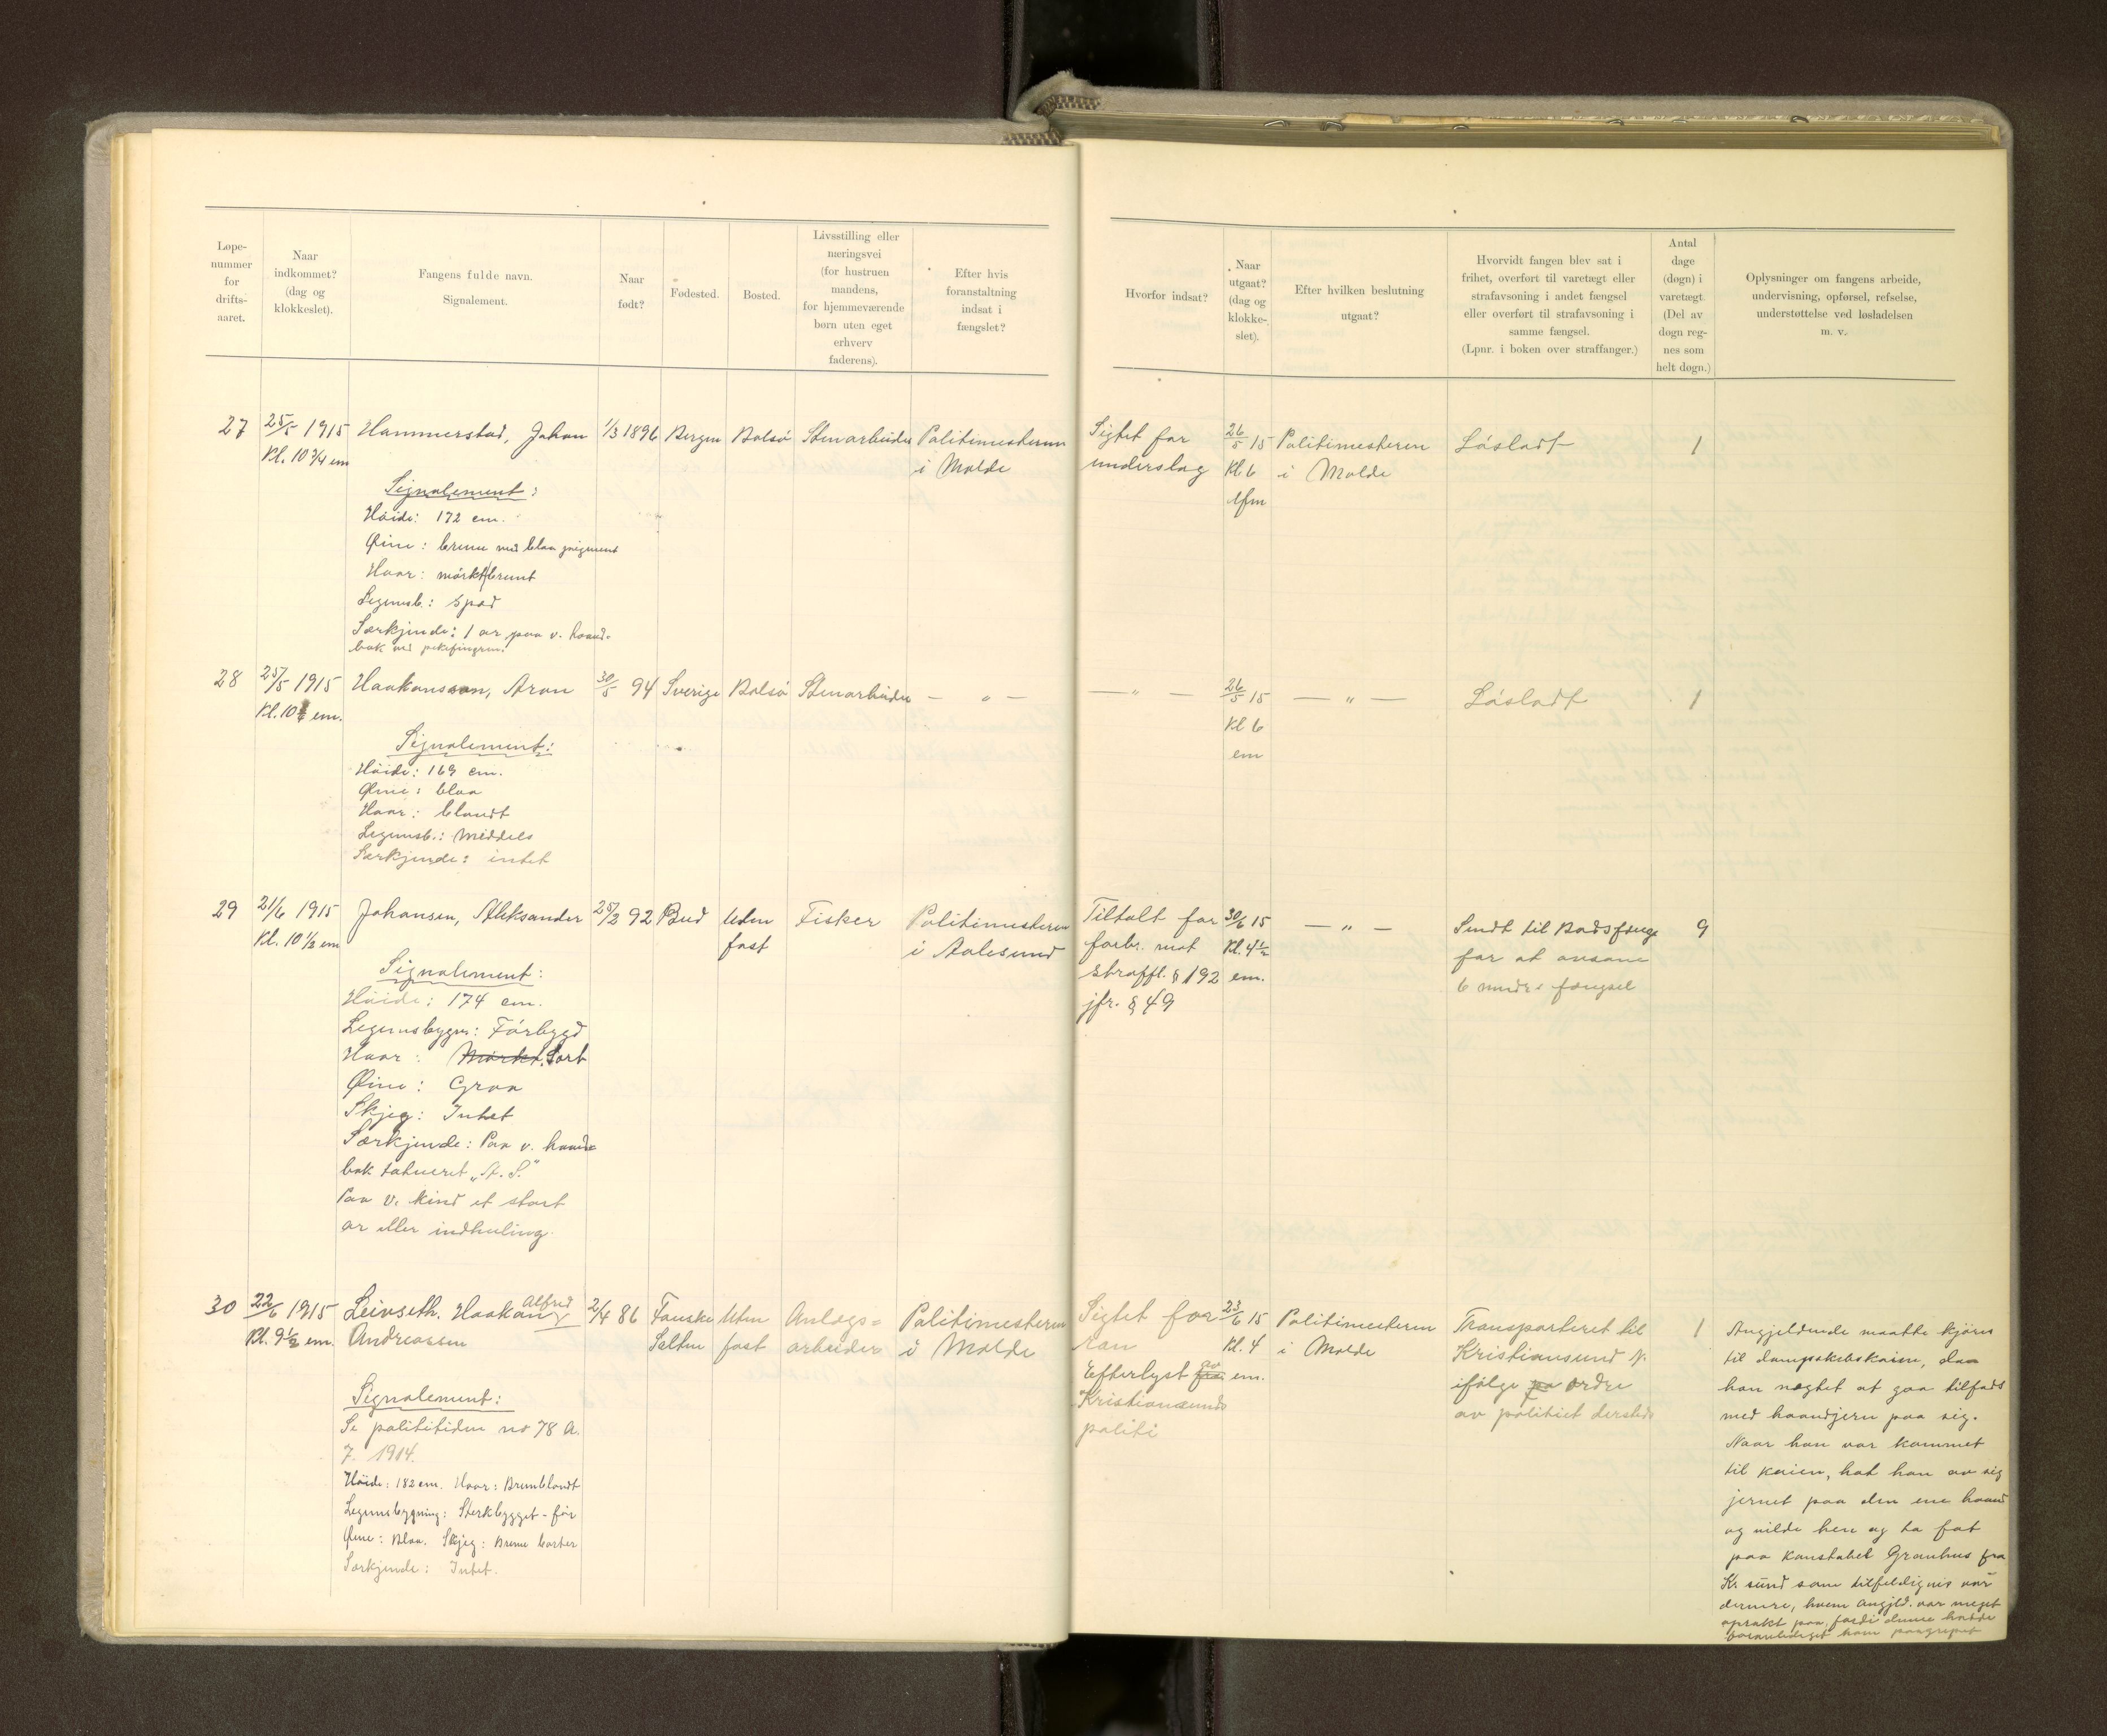 Løpe-
nummer
for
drifts-
aaret.
Naar
indkommet?
(dag og
klokkeslet).
Fangens fulde navn.
Signalement.
Naar
født?
Fødested.
Bosted.
Livsstilling eller
næringsvei
(for hustruen
mandens,
for hjemmeværende
børn uten eget
erhverv
faderens).
Efter hvis
foranstaltning
indsat i
fængslet?
Hvorfor indsat?
Naar
utgaat?
(dag og
klokke-
slet).
Efter hvilken beslutning
utgaat?
Hvorvidt fangen blev sat i
frihet, overført til varetægt eller
strafavsoning i andet fængsel
eller overført til strafavsoning i
samme fængsel.
(Lpnr. i boken over straffanger.)
Antal
dage
(døgn) i
varetægt.
(Del av
døgn reg-
nes som
helt døgn.)
Oplysninger om fangens arbeide,
undervisning, opførsel, refselse,
understøttelse ved løsladelsen
m. v.
27
25/5 1915
Kl. 10 3/4 em
Hammerstad, Johan
1/3 1896
Bergen
Bolsö
Stenarbeider
Politimesteren
i Molde
Signalement:
Höide: 172 cm.
Øine: brune med blaa pigment
Haar: mörkt brunt
Legemsb.: Spæd
Særkjende: 1 ar paa v. haand-
bak ved pekefingren.
Sigtet for
underslag
26/5 15
Kl. 6
efm
Politimesteren
i Molde
Lösladt
1
28
25/5 1915
Kl. 10 em.
Haakansson, Aron
30/5 94
Sverige
Bolsö
Stenarbeider
— „ —
Signalement:
Höide: 169 cm.
Øine: blaa
Haar: blondt
Legemsb.: Middels
Særkjende: intet
— „ —
26/5 15
Kl 6
em
— „ —
Lösladt
1
29
21/6 1915
Kl. 10 1/2 em
Johansen, Aleksander
25/2 92
Bud
Uden
fast
Fisker
Politimesteren
i Aalesund
Signalement:
Höide: 174 cm.
Legemsbygn: Förbygd
Haar: Mörkt. Sort
Øine: Graa
Skjeg: Intet
Særkjende: Paa v. haand-
bak tatueret „A. S."
Paa v. kind et stort
ar eller indhuling.
Tiltalt for
forbr. mot
straffl. § 192
jfr. § 49
30/6 15
Kl. 4 1/2
em.
— „ —
Sendt til Bodsfængs
for at avsone
6 mndrs fængsel
9
30
22/6 1915
Kl. 9 1/2 em.
Leivseth. Haakan Alfred
Andreassen
2/4 86
Fauske
Salten
Uten
fast
Anlægs=
arbeider
Politimesteren
i Molde
Signalement:
Se polititidn no 78 A.
7. 1914.
Höide: 182 cm. Haar: Brunblondt
Legemsbygning: Sterkbygget - för
Øine: Blaa. Skjeg: Brune barter
Særkjende: Intet.
Sigtet for
ran
Efterlyst fra av
Kristiansunds
politi
23/6 15
Kl. 4
em.
Politimesteren
i Molde
Transporteret til
Kristiansund N.
ifölge pa ordre
av politiet dersteds
1
Angjeldende maatte kjöres
til dampskibskaien, daa
han nægtet at gaa tilfods
med haandjern paa sig.
Naar han var kommet
til kaien, hat han av sig
jernet paa den ene haand
og vilde hen og ta fat
paa konstabel Granhus fra
Kr. sund som tilfeldigvis var
dernere, hvem angjeld. var meget
oprakt paa, fordi denne hadde
foranlediget ham paagrepet